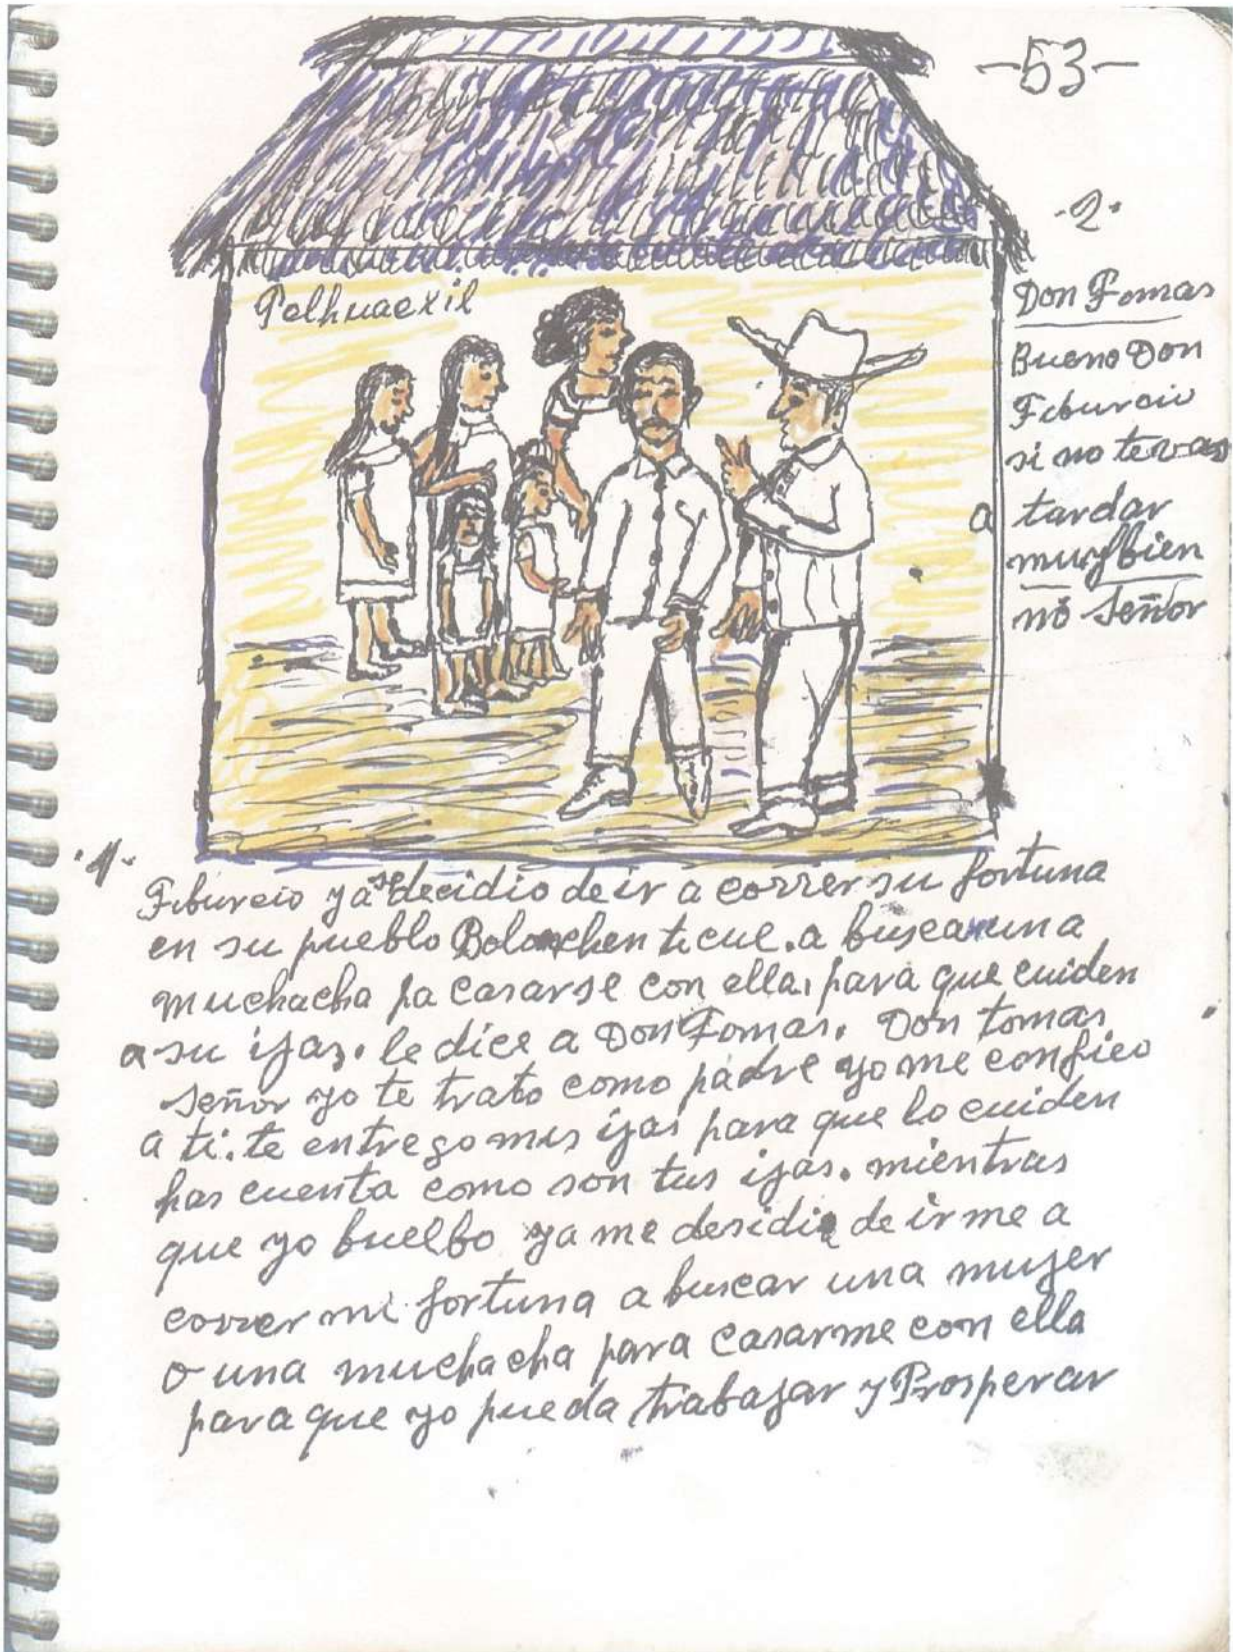 -53-
Pelhuaexil
·2·
Don Tomas
Bueno Don
Tiburcio
si no te vas
a tardar
muy bien
no señor
·1·
Tiburcio ya se decidio de ir a correr su fortuna
en su pueblo Bolonchen ticul. a buscar una
muchacha pa casarse con ella, para que cuiden
a su ijas. le dice a Don Tomas. Don tomas
señor yo te trato como padre yo me confieo
a ti. te entrego mis ijas para que lo cuiden
has cuenta como son tus ijas. mientras
que yo buelbo ya me desidie de irme a
correr mi fortuna a buscar una mujer
o una muchacha para casarme con ella
para que yo pueda trabajar y Prosperar